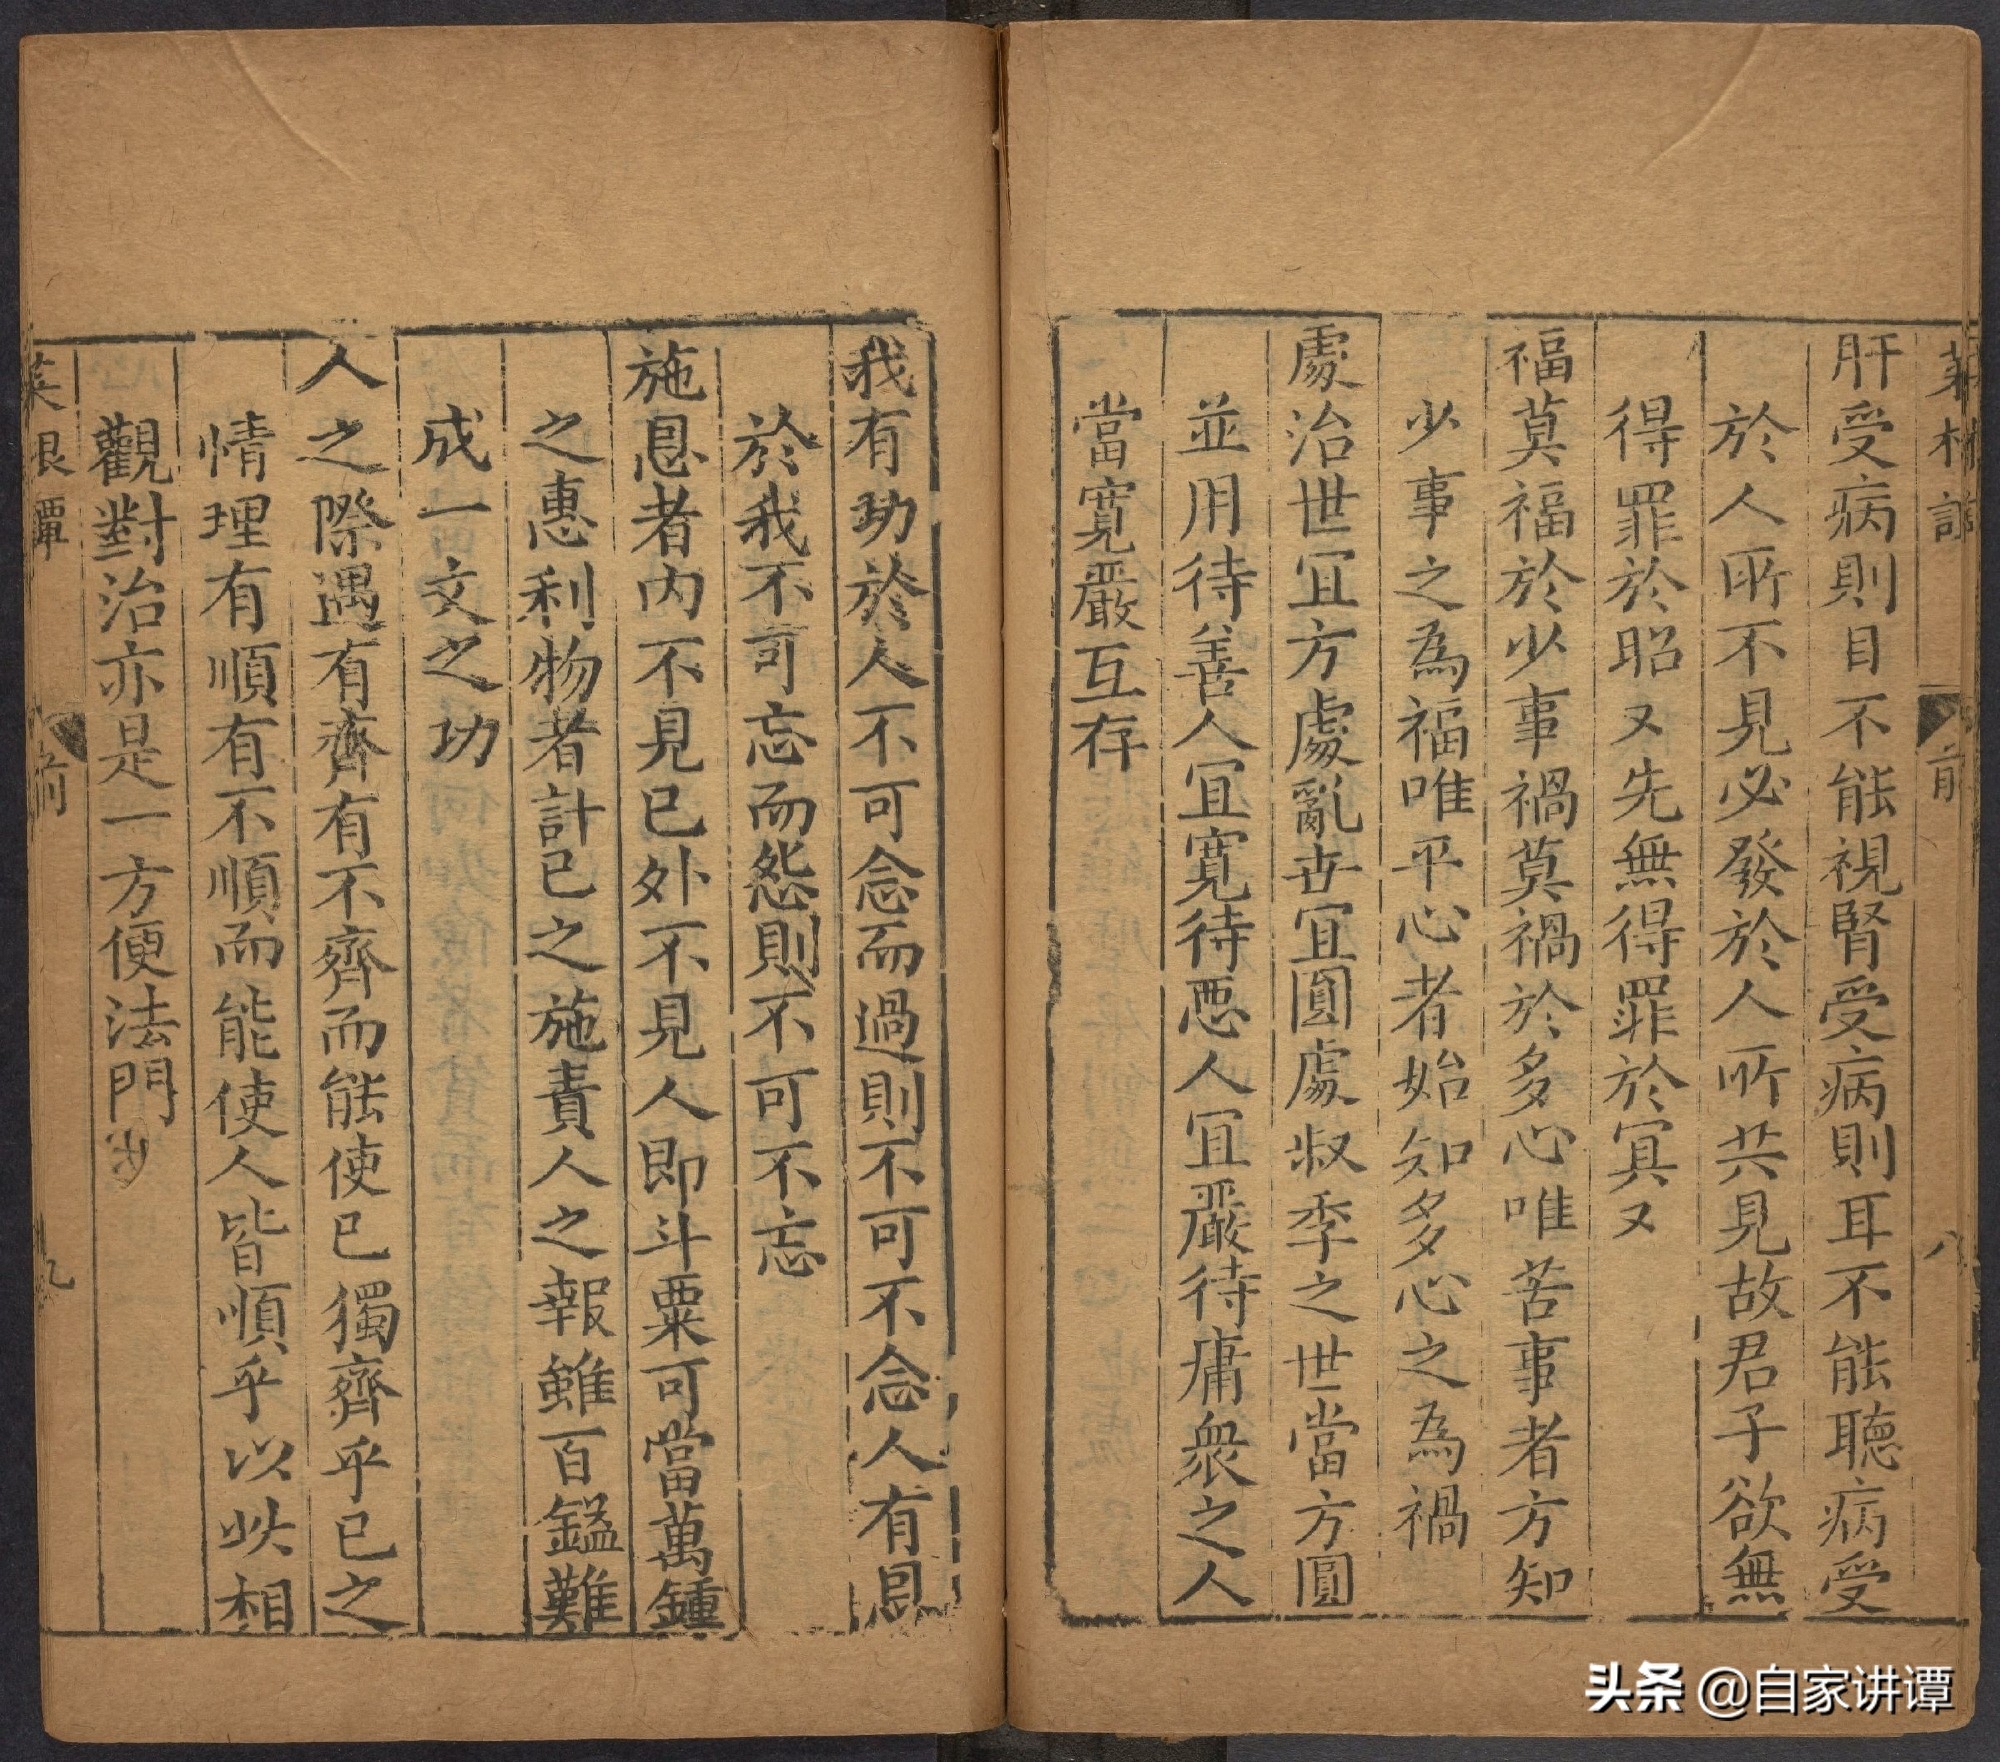 菜根譚
前
八
肝受病則目不能視腎受病則耳不能聽病受
於人所不見必發於人所共見故君子欲無
得罪於昭又先無得罪於冥又
福莫福於少事禍莫禍於多心唯苦事者方知
少事之為福唯平心者始知多心之為禍
處治世宜方處亂世宜圓處叔季之世當方圓
並用待善人宜寬待惡人宜嚴待庸衆之人
當寬嚴互存
我有功於人不可念而過則不可不念人有恩
於我不可忘而怨則不可不忘
施恩者内不見已外不見人即斗粟可當萬鍾
之惠利物者計已之施責人之報雖百鎰難
成一文之功
人之際遇有齊有不齊而能使已獨齊乎已之
情理有順有不順而能使人皆順乎以此相
觀對治亦是一方便法門
菜根譚
前
九
头条 @自家讲谭